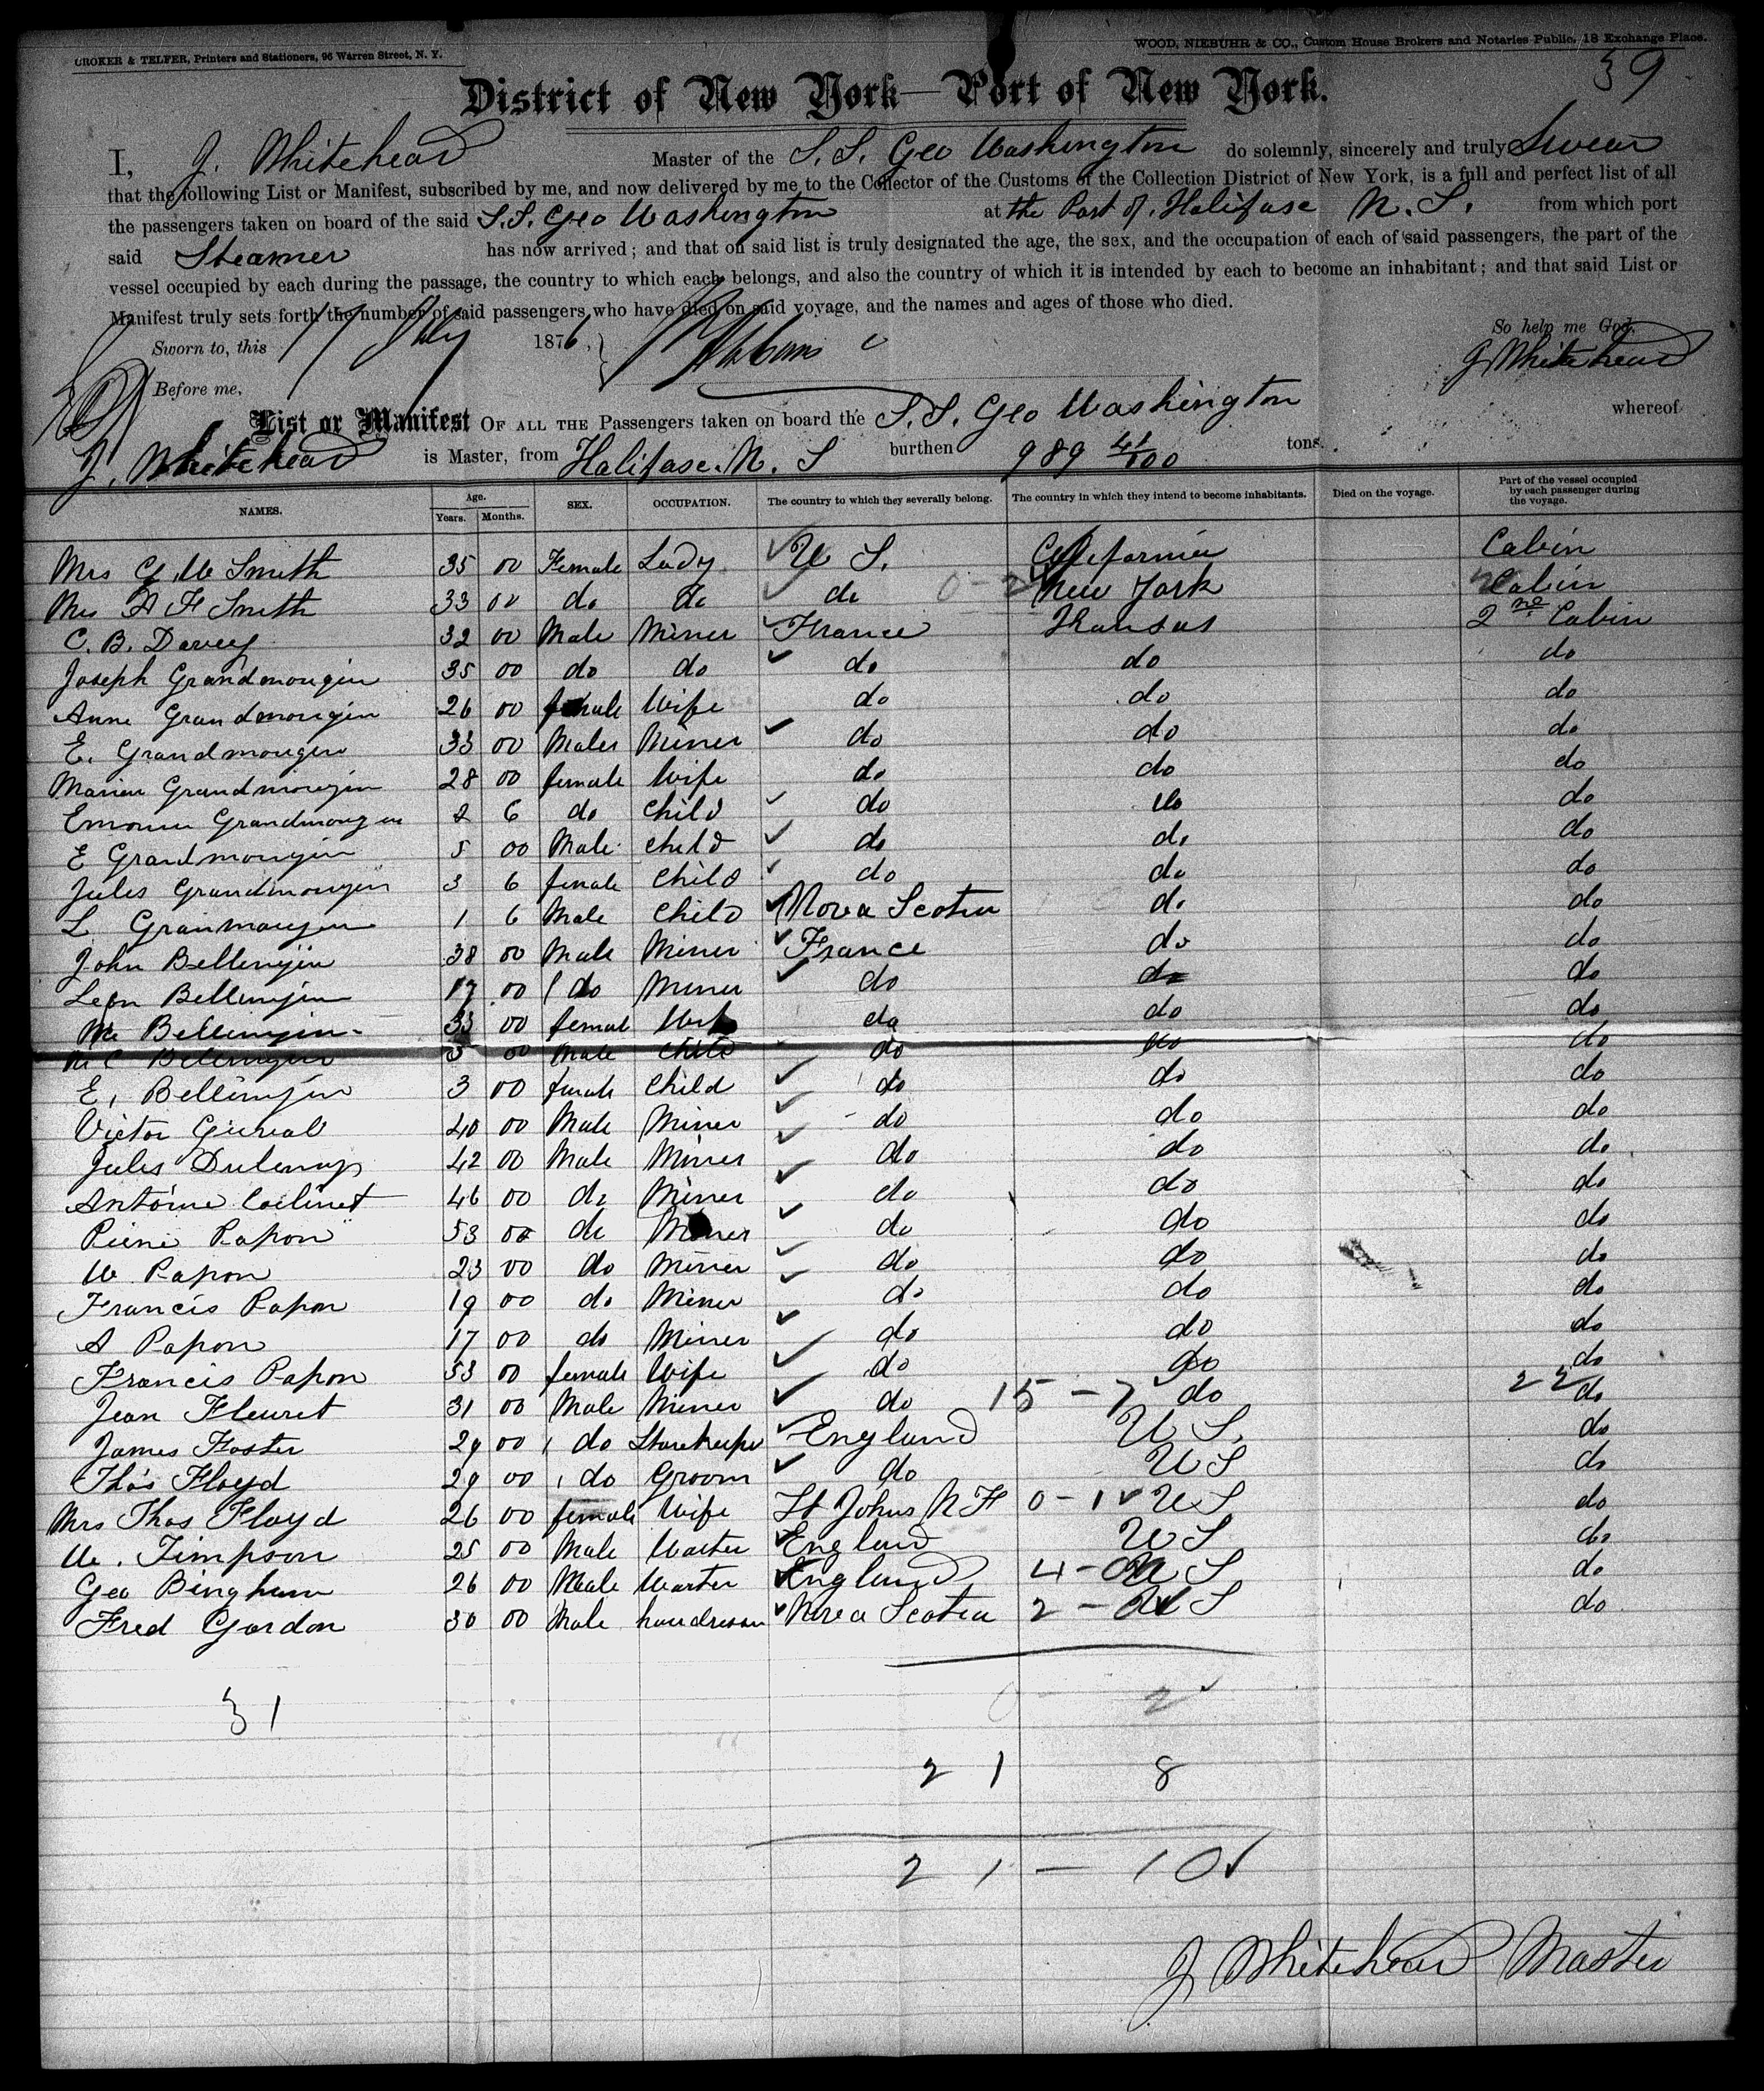 CROKER & TELFER, Printers and Stationers, 96 Warren Street, N. Y.
WOOD, NIEBUHR & CO., Custom House Brokers and Notaries Public, 18 Exchange Place.
59
District of New York—Port of New York.
I, J. Whitehead Master of the S. S. Geo Washington do solemnly, sincerely and truly Swear
that the following List or Manifest, subscribed by me, and now delivered by me to the Collector of the Customs of the Collection District of New York, is a full and perfect list of all
the passengers taken on board of the said S.S. Geo Washington at the Port of Halifax N. S. from which port
said Steamer has now arrived; and that on said list is truly designated the age, the sex, and the occupation of each of said passengers, the part of the
vessel occupied by each during the passage, the country to which each belongs, and also the country of which it is intended by each to become an inhabitant; and that said List or
Manifest truly sets forth the number of said passengers who have died on said voyage, and the names and ages of those who died.
Sworn to, this 17 July 1876. So help me God.
J Whitehead
Before me,
List or Manifest OF ALL THE Passengers taken on board the S. S. Geo Washington whereof
J. Whitehead is Master, from Halifax. N. S burthen 989 41/100 tons.
NAMES. Age. Years. Months. SEX. OCCUPATION. The country to which they severally belong. The country in which they intend to become inhabitants. Died on the voyage. Part of the vessel occupied by each passenger during the voyage.
Mrs G. W Smith 35 00 Female Lady U S. California Cabin
Mrs A F Smith 33 00 do do do 0-2 New York Cabin
C. B. Davey 32 00 Male Miner France Kansas 2nd Cabin
Joseph Grandmougin 35 00 do do do do do
Anne Grandmougin 26 00 female Wife do do do
E. Grandmougin 33 00 Males Miner do do do
Marien Grandmougin 28 00 female Wife do do do
Grandmougin 2 6 do Child do do do
E Grandmougin 5 00 Male child do do do
Jules Grandmougin 3 6 female Child do do do
L Granmougin 1 6 Male Child Nova Scotia do do
John Bellemjin 38 00 Male Miner France do do
Leon Bellemjin 17 00 do Miner do do do
Me Bellemjin 33 00 femal Wife do do do
M C Bellemjin 5 00 Male Child do do do
E, Bellemjin 3 00 female Child do do do
Victor 40 00 Male Miner do do do
Jules 42 00 Male Miner do do do
Antoine Colinet 46 00 do Miner do do do
Pierre Papon 53 00 do Miner do do do
W Papon 23 00 do Miner do do do
Francis Papon 19 00 do Miner do do do
A Papon 17 00 do Miner do do do
Francis Papon 53 00 female Wife do do do
Jean Fleuret 31 00 Male Miner do 15-7 do 22 do
James Foster 29 00 do Storekeeper England U S. do
Thos Floyd 29 00 do Groom do U S do
Mrs Thos Floyd 26 00 female Wife St Johns N F 0-1 U S do
W. Timpson 25 00 Male Waiter England U S do
Geo Bingham 26 00 Male Waiter England 4-0 U S do
Fred Gordon 30 00 Male Nova Scotia 2-0 U S do
31
0 2
21 8
21 - 10
J Whitehead Master